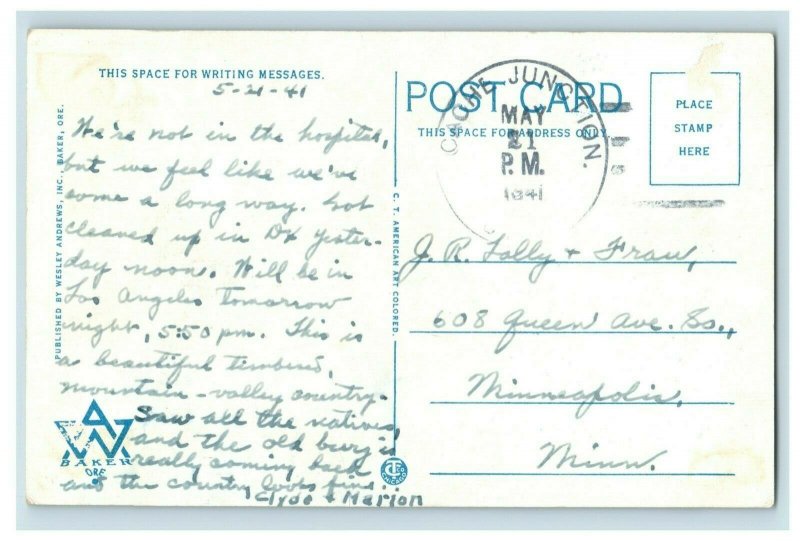 THIS SPACE FOR WRITING MESSAGES.
5-21-41
We're not in the hospital,
but we feel like we've
come a long way. Got
cleaned up in Dx yester-
day noon. Will be in
Los Angeles tomorrow
night, 5:50 pm. This is
a beautiful timbered,
mountain - valley country.
Saw all the natives,
and the old burg is
really coming back
and the country looks fine.
Clyde & Marion
PUBLISHED BY WESLEY ANDREWS, INC., BAKER, ORE.
AW
BAKER
ORE
C. T. AMERICAN ART COLORED.
POST CARD
THIS SPACE FOR ADDRESS ONLY
JUNCTION.
MAY
21
P.M.
1941
PLACE
STAMP
HERE
J. R. Lally & Frau,
608 Queen Ave. So.,
Minneapolis,
Minn.